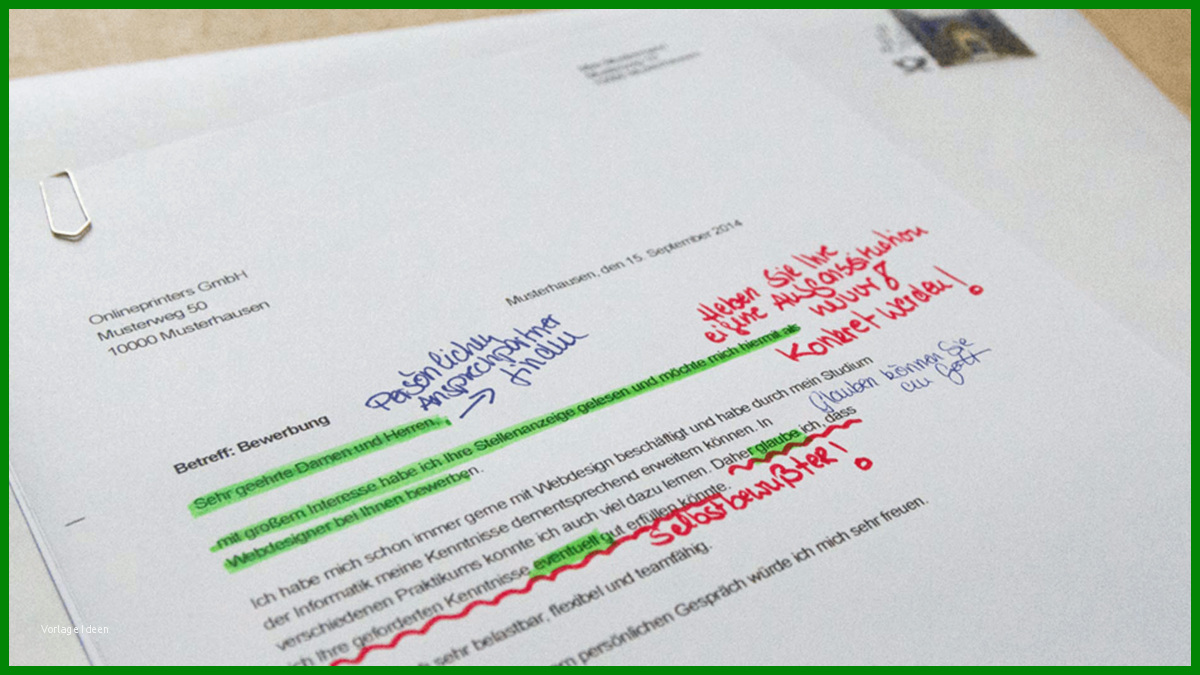 Onlineprinters GmbH
Musterweg 50
10000 Musterhausen
Musterhausen, den 15. September 2014
Heben Sie Ihre
Konkret werden!
Persönlichen
Ansprechpartner
→ finden
Betreff: Bewerbung
Sehr geehrte Damen und Herren,
mit großem Interesse habe ich Ihre Stellenanzeige gelesen und möchte mich hiermit als
Webdesigner bei Ihnen bewerben.
Glauben können Sie
an Gott
Ich habe mich schon immer gerne mit Webdesign beschäftigt und habe durch mein Studium
der Informatik meine Kenntnisse dementsprechend erweitern können. In
verschiedenen Praktikums konnte ich auch viel dazu lernen. Daher glaube ich, dass
ich Ihre geforderten Kenntnisse eventuell gut erfüllen könnte.
selbstbewußter!
sehr belastbar, flexibel und teamfähig.
persönlichen Gespräch würde ich mich sehr freuen.
Vorlage Ideen